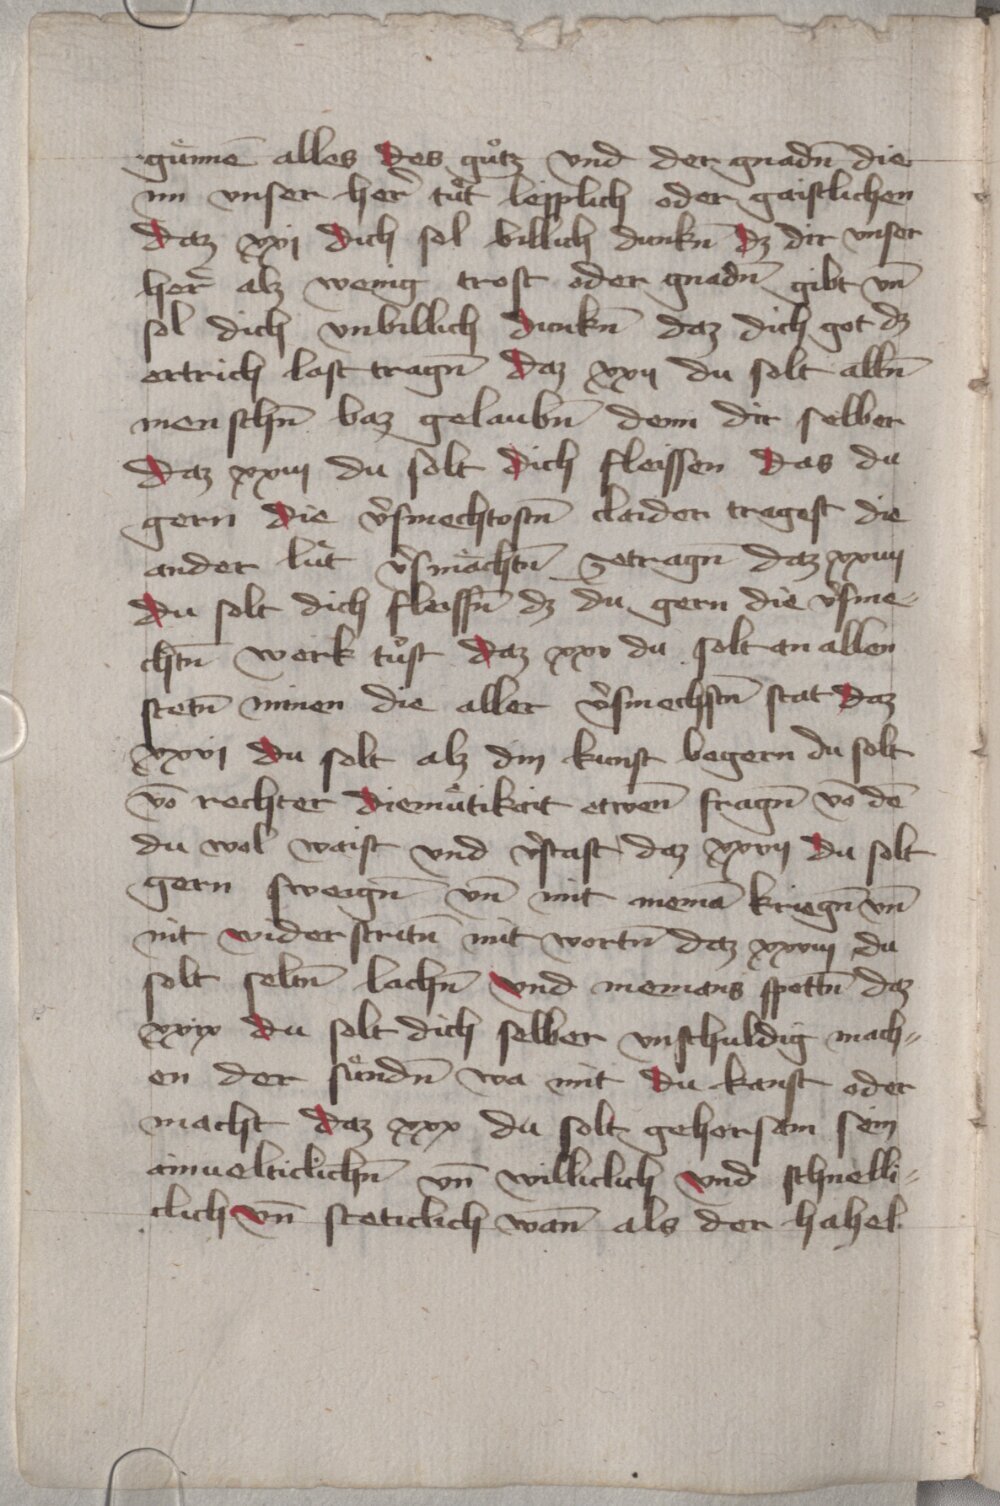 gúnnē alles des gůtz vnd der gnadn̄ die
im vnser her̄ tůt leipplich oder gaistlichen
daz xxj dich sol billich dunkn̄ dz dir vnser
her̄ alz wenig trost oder gnadn̄ gibt vn̄
sol dich vnbillich dunkn̄ daz dich got dz
ertrich lost tragn̄ daz xxij du solt alln̄
menschn̄ baz gelaubn̄ denn dir selber
daz xxiij du solt dich fleissen das du
gern die v̄smechtostn̄ claider tragest die
ander lút v̄smächtn̄ ze tragn̄ daz xxiiij
du solt dich fleissn̄ dz du gern die v̄sme-
chtn̄ werk tůst daz xxv du solt an allen
stetn̄ minen die aller v̄smechstn̄ stat daz
xxvi du solt alz din kunst begern du solt
vō rechter diemůtikait etwen̄ fragn̄ vō dē
du wol waist vnd v̄stast daz xxvij du solt
gern sweign̄ vn̄ mit niemā kriegn̄ vn̄
nit widerstritn̄ mit wortn̄ daz xxviij du
solt seltn̄ lachn̄ vnd niemans spottn̄ daz
xxix du solt dich selber vnschuldig mach-
en der súndn̄ wa mit du kanst oder
macht daz xxx du solt gehorsam sein
ainuelticlichn̄ vn̄ williclich vnd schnelli-
clich vn̄ steticlich wan̄ als der hahel